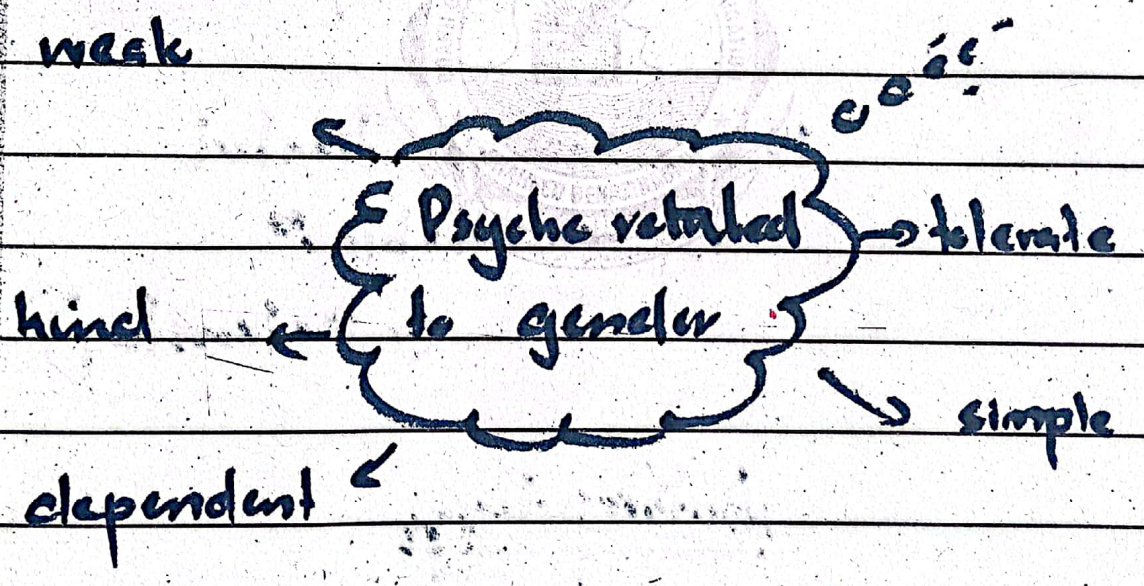 weak
Psyche retated
to gender
tolerate
kind
simple
dependent